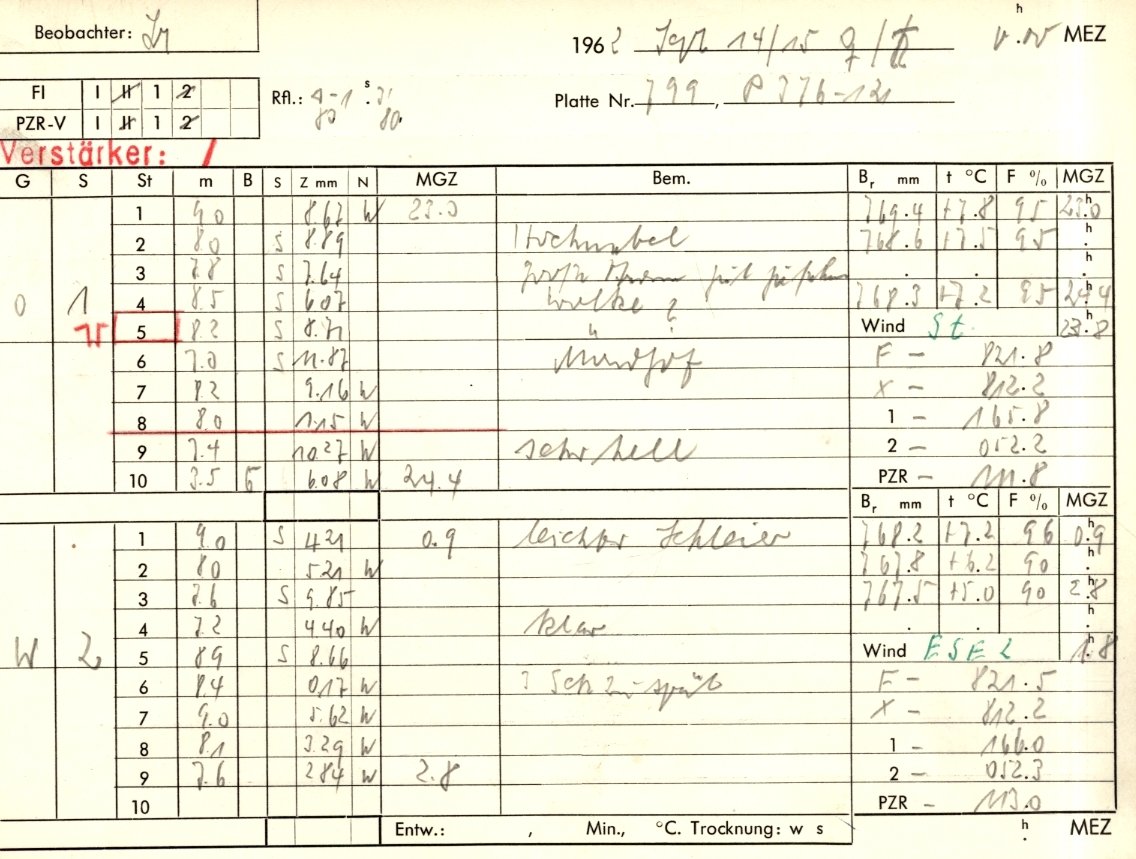 Beobachter:
h
1962 Sept 14/15 MEZ
FI I II 1 2
PZR-V I II 1 2
Rfl.: s
Platte Nr. 799, P 376-121
Verstärker: /
G S St m B S Z mm N MGZ Bem. Br mm t °C F % MGZ
1 9.0 8.67 W 23.0 769.4 +7.8 95 23.0 h
2 8.0 S 8.89 Hochnebel 768.6 +7.5 95 h
3 7.8 S 7.64 h
O 1 4 8.5 S 6.07 Wolke ? 768.3 +7.2 95 24.4 h
5 8.2 S 8.71 " Wind St. 23.8 h
6 7.0 S 11.87 Mondhof F – 821.8
7 8.2 9.16 W X – 812.2
8 8.0 1.15 W 1 – 165.8
9 7.4 10.27 W sehr hell 2 – 052.2
10 3.5 6.08 W 24.4 PZR – 111.8
Br mm t °C F % MGZ
1 9.0 S 4.21 0.9 leichter Schleier 768.2 +7.2 96 0.9 h
2 8.0 5.21 W 767.8 +6.2 90 h
3 7.6 S 9.85 767.5 +5.0 90 2.8 h
4 7.2 4.40 W klar h
W 2 5 8.9 S 8.66 Wind ESE 2 1.8 h
6 8.4 0.17 W zu spät F – 821.5
7 9.0 5.62 W X – 812.2
8 8.1 3.29 W 1 – 166.0
9 7.6 2.84 W 2.8 2 – 052.3
10 PZR – 113.0
Entw.: , Min., °C. Trocknung: w s h MEZ